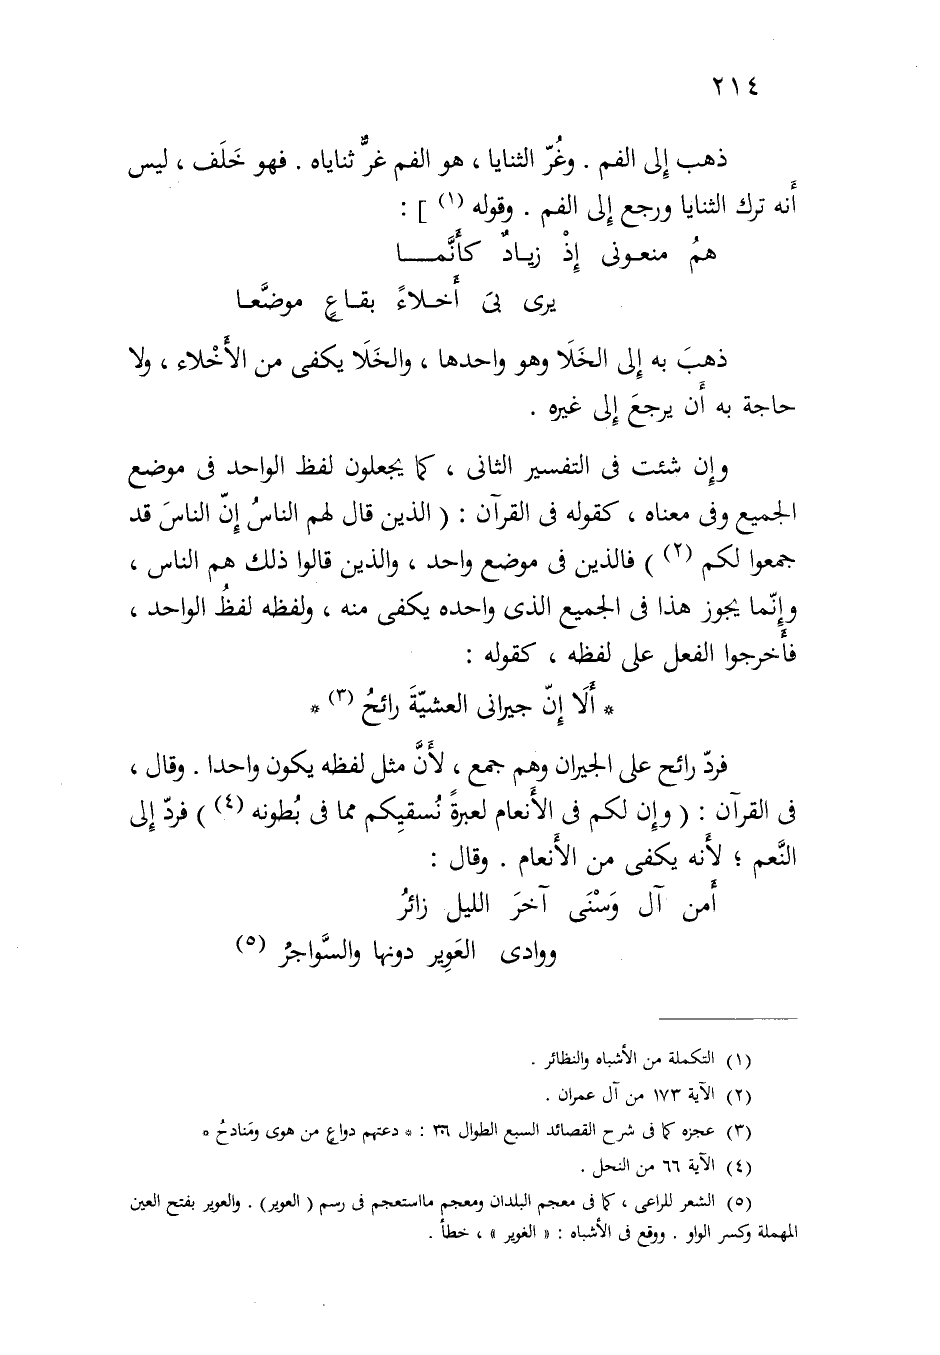 ٢١٤
ذهب إلى الفم . وغُرّ الثنايا ، هو الفم غرٌّ ثناياه . فهو خَلَف ، ليس
أَنه ترك الثنايا ورجع إلى الفم . وقوله (١) ] :
همُ منعـونى إِذْ زيـادٌ كأَنَّمـــا
يرى بىَ أَخـلاءً بقـاعٍ موضَّعـا
ذهبَ به إلى الخَلَا وهو واحدها ، والخَلَا يكفى من الأَخْلاء ، ولا
حاجة به أَن يرجعَ إِلى غيره .
وإِن شئت فى التفسير الثانى ، كما يجعلون لفظ الواحد فى موضع
الجميع وفى معناه ، كقوله فى القرآن : ( الذين قال لهم الناسُ إِنّ الناسَ قد
جمعوا لكم (٢) ) فالذين فى موضع واحد ، والذين قالوا ذلك هم الناس ،
وإِنّما يجوز هذا فى الجميع الذى واحده يكفى منه ، ولفظه لفظُ الواحد ،
فأَخرجوا الفعل على لفظه ، كقوله :
* أَلَا إِنّ جيرانى العشيّةَ رائحُ (٣) *
فردّ رائح على الجيران وهم جمع ، لأَنَّ مثل لفظه يكون واحدا . وقال ،
فى القرآن : ( وإِن لكم فى الأَنعام لعبرةً نُسقيِكم مما فى بُطونه (٤) ) فردّ إِلى
النَّعم ؛ لأَنه يكفى من الأَنعام . وقال :
أَمن آل وَسْنَى آخرَ الليل زائرُ
ووادى العَوِير دونها والسَّواجرُ (٥)
(١) التكملة من الأشباه والنظائر .
(٢) الآية ١٧٣ من آل عمران .
(٣) عجزه كما فى شرح القصائد السبع الطوال ٣٦ : * دعتهم دواعٍ من هوى ومَنادحُ *
(٤) الآية ٦٦ من النحل .
(٥) الشعر للراعى ، كما فى معجم البلدان ومعجم مااستعجم فى رسم ( العوير) . والعوير بفتح العين
المهملة وكسر الواو . ووقع فى الأشباه : « الغوير » ، خطأ .